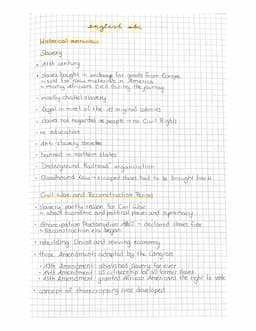 english abi
Historical overview
Slavery
• 17th century
• slaves bought in exchange for goods from Europe
→ sold for raw materials in America
→ many africans died during the journey
• mostly chattel slavery
• legal in most of the 13 original colonies
• slaves not regarded as people → no Civil Rights
• no education
• Anti-slavery societies
• banned in northern states
• "Underground Railroad" organization
• Bloodhound Law → escaped slaves had to be brought back
Civil War and Reconstruction Period
• slavery partly reason for Civil War
→ about economic and political power and supremacy
• Emancipation Proclamation 1862 → declared slaves free
→ Reconstruction era began
• rebuilding Union and reviving economy
• three Amendments adopted by the Congress
→ 13th Amendment abolished slavery for ever
→ 14th Amendment US citizenship for all former slaves
→ 15th Amendment granted African Americans the right to vote
• concept of sharecropping was developed